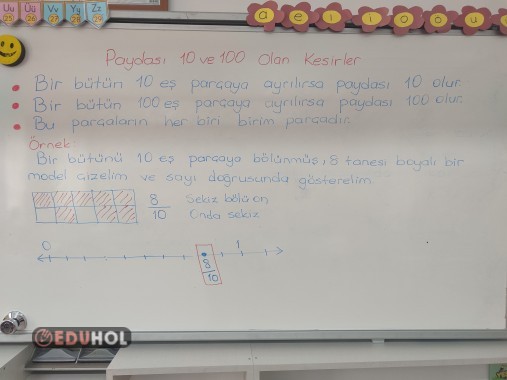 Uu Üü Vv Yy Zz
25 26 27 28 29
a e ı i o ö u
Paydası 10 ve 100 Olan Kesirler
Bir bütün 10 eş parçaya ayrılırsa paydası 10 olur.
Bir bütün 100 eş parçaya ayrılırsa paydası 100 olur.
Bu parçaların her biri birim parçadır.
Örnek
Bir bütünü 10 eş parçaya bölünmüş, 8 tanesi boyalı bir
model çizelim ve sayı doğrusunda gösterelim.
8/10 Sekiz bölü on
Onda sekiz
0 1
8/10
EDUHOL